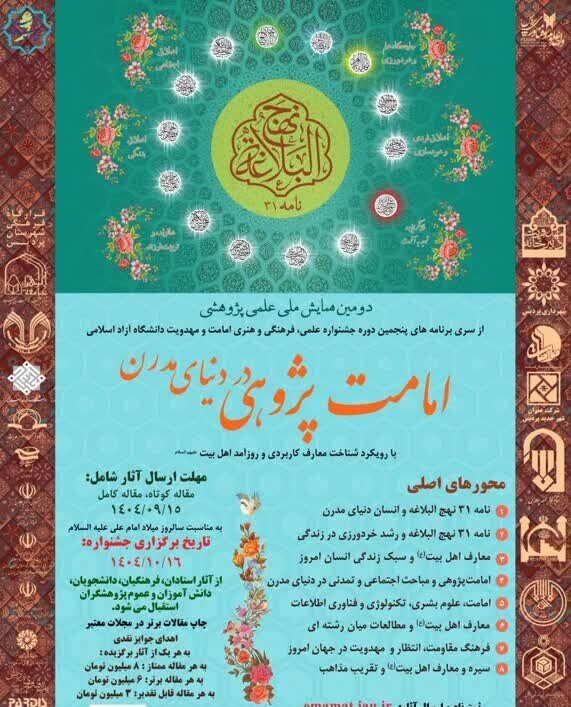 نهج البلاغة
نامه ۳۱
دومین همایش ملی علمی پژوهشی
از سری برنامه های پنجمین دوره جشنواره علمی، فرهنگی و هنری امامت و مهدویت دانشگاه آزاد اسلامی
امامت پژوهی در دنیای مدرن
با رویکرد شناخت معارف کاربردی و روزآمد اهل بیت علیهم السلام
محورهای اصلی
۱ نامه ۳۱ نهج البلاغه و انسان دنیای مدرن
۲ نامه ۳۱ نهج البلاغه و رشد خردورزی در زندگی
۳ معارف اهل بیت(ع) و سبک زندگی انسان امروز
۴ امامت‌پژوهی و مباحث اجتماعی و تمدنی در دنیای مدرن
۵ امامت، علوم بشری، تکنولوژی و فناوری اطلاعات
۶ معارف اهل بیت(ع) و مطالعات میان رشته ای
۷ فرهنگ مقاومت، انتظار و مهدویت در جهان امروز
۸ سیره و معارف اهل بیت(ع) و تقریب مذاهب
مهلت ارسال آثار شامل:
مقاله کوتاه، مقاله کامل
۱۴۰۴/۰۹/۱۵
به مناسبت سالروز میلاد امام علی علیه السلام
تاریخ برگزاری جشنواره:
۱۴۰۴/۱۰/۱۶
از آثار استادان، فرهنگیان، دانشجویان،
دانش آموزان و عموم پژوهشگران
استقبال می شود.
چاپ مقالات برتر در مجلات معتبر
اهدای جوایز نقدی
به هر یک از آثار برگزیده :
به هر مقاله ممتاز : ۸ میلیون تومان
به هر مقاله برتر: ۶ میلیون تومان
به هر مقاله قابل تقدیر: ۳ میلیون تومان
emamat.iau.ir
شهرداری پردیس
شرکت عمران
شهر جدید پردیس
PARDIS